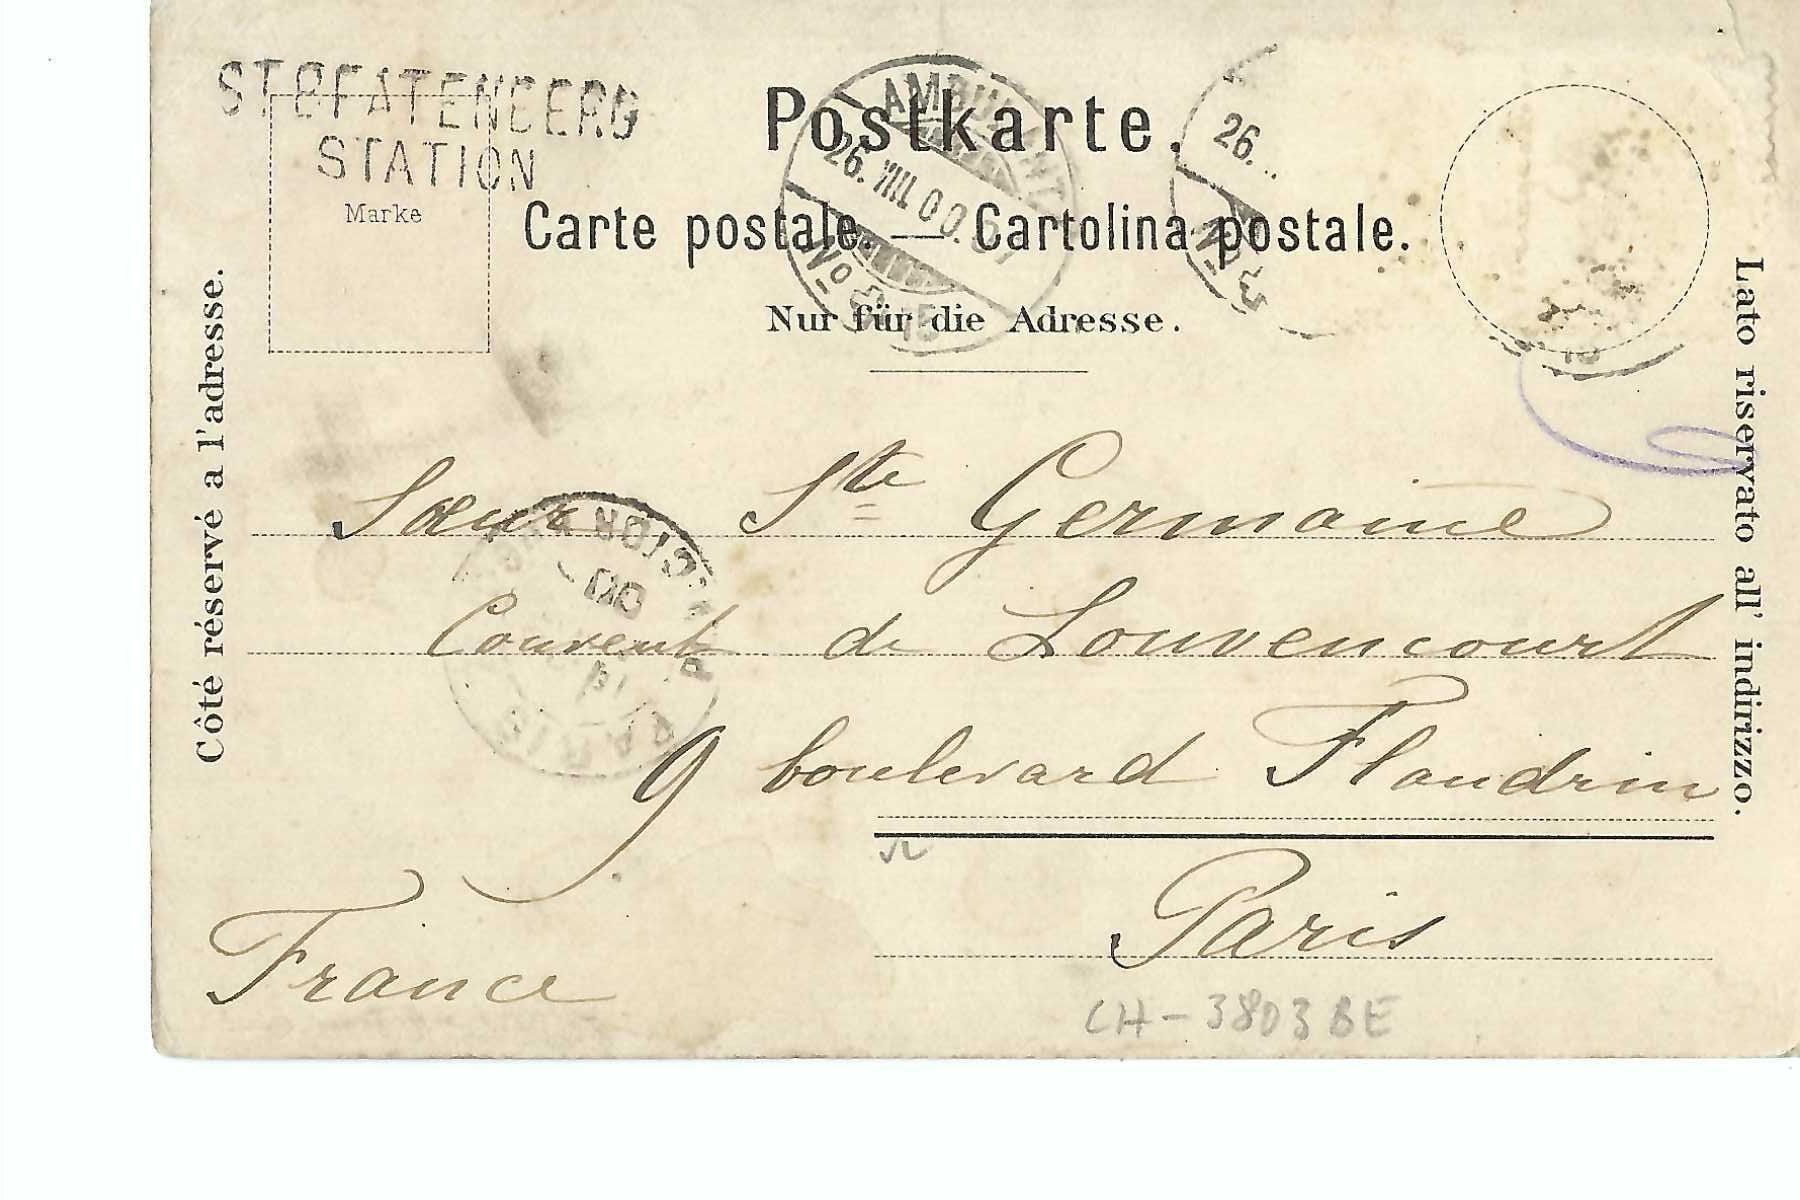 ST BEATENBERG
STATION
Marke
Postkarte.
Carte postale. — Cartolina postale.
Nur für die Adresse.
AMBULANT
26. VIII. 00.
No
26.
No
Côté réservé a l'adresse.
Lato riservato all' indirizzo.
Sœur Ste Germaine
Couvent de Louvencourt
9 boulevard Flandrin
Paris
France
PARIS
00
CH-3803 BE